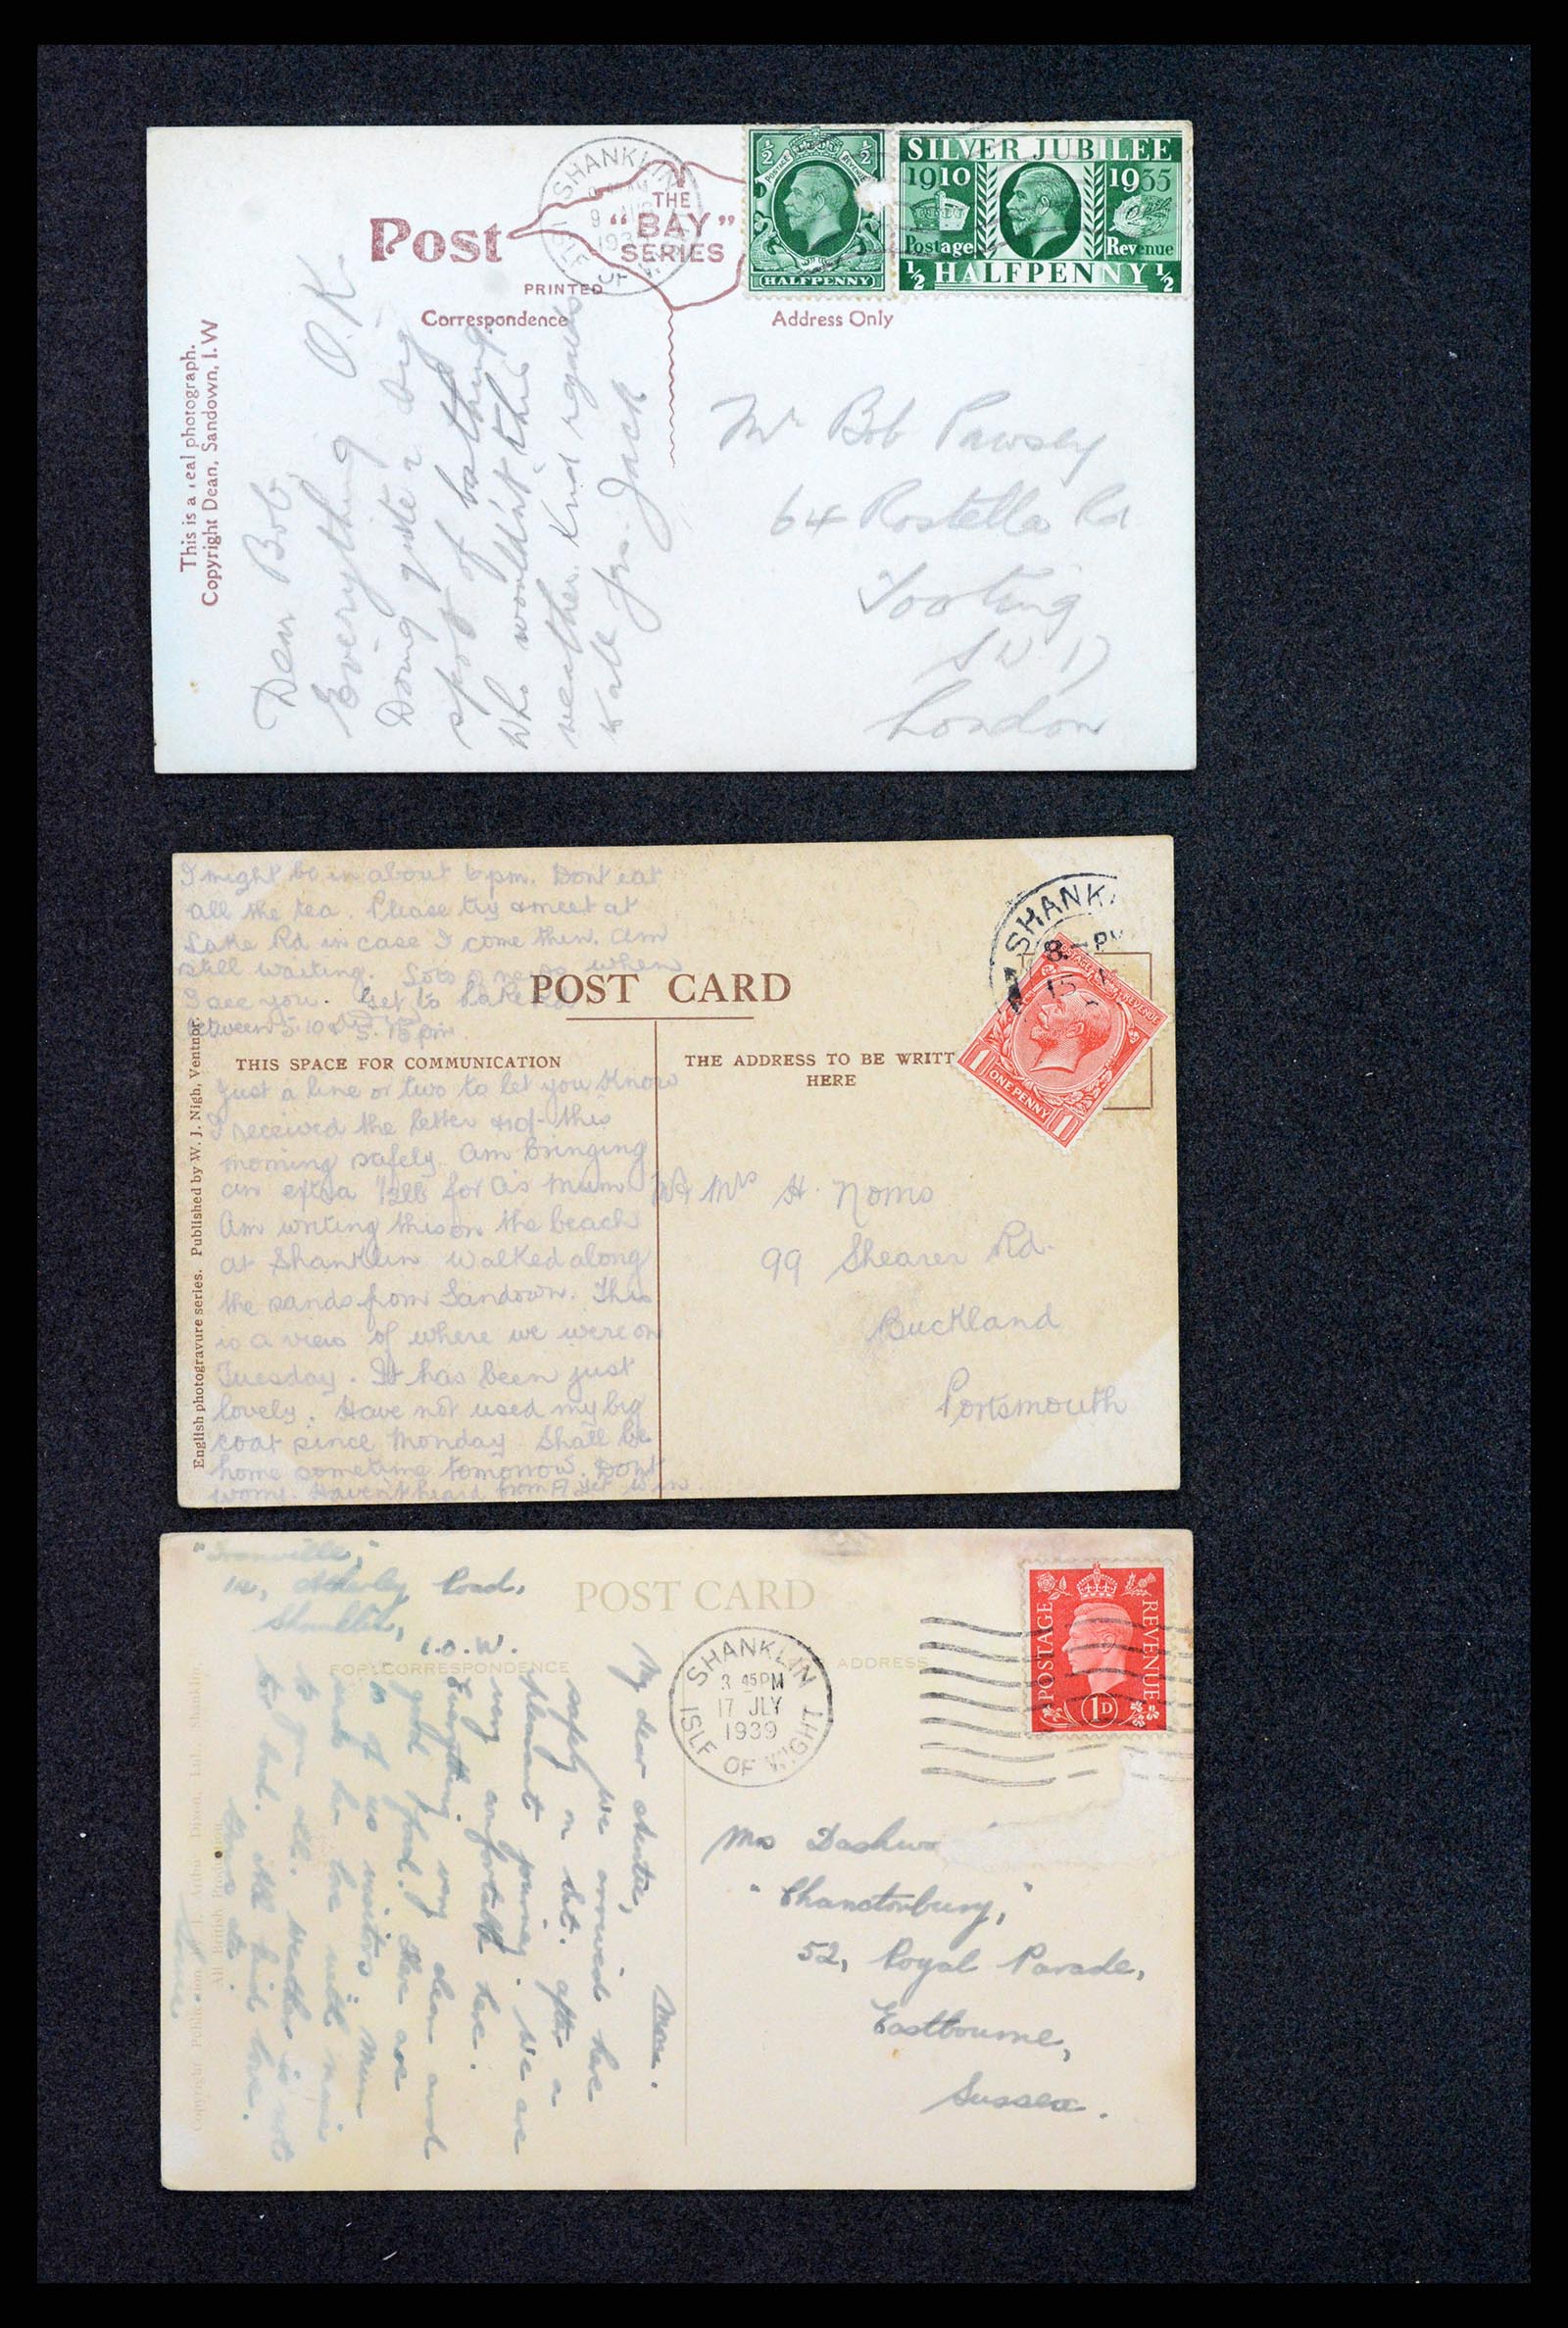 This is a real photograph.
Copyright Dean, Sandown, I.W
Post
THE
"BAY"
SERIES
PRINTED
Correspondence
Address Only
SHANKLIN
ISLE OF W
½ ½
POSTAGE REVENUE
HALFPENNY
SILVER JUBILEE
1910 1935
Postage Revenue
½ HALFPENNY ½
Dear Bob,
Everything O.K.
Doing quite a big
spot of bathing.
Who wouldn't this
weather. Kind regards
to all Jack
Mr Bob Pawsey
64 Rostella Rd
Tooting
SW 17
London
I might be in about 6 pm. Dont eat
all the tea. Please try & meet at
Lake Rd in case I come then. Am
still waiting. Lots of news when
I see you. Get to Lake Rd
between 5.10 & 5.15 pm
POST CARD
THIS SPACE FOR COMMUNICATION
THE ADDRESS TO BE WRITT
HERE
English photogravure series. Published by W. J. Nigh, Ventnor.
Just a line or two to let you know
I received the letter & 10/- this
morning safely. Am bringing
an extra ½lb for As Mum
Am writing this on the beach
at Shanklin walked along
the sands from Sandown. This
is a view of where we were on
Tuesday. It has been just
lovely. Have not used my big
coat since Monday. Shall be
home sometime tomorrow. Dont
worry. Haven't heard from A yet
SHANK
8 - PM
15
POSTAGE REVENUE
1 ONE PENNY 1
Mrs H.
99 Shearer Rd.
Buckland
Portsmouth
Road,
Shanklin,
I.O.W.
POST CARD
FOR CORRESPONDENCE
ADDRESS
SHANKLIN
3 45 PM
17 JLY
1939
ISLE OF WIGHT
POSTAGE REVENUE
1D
My dear
We arrived here
safely on Sat. after a
pleasant journey. We are
very comfortable here.
Everything very clean and
good food. There are
of us visitors Mum
to you all. Weather is not
too bad. With kind love.
Mrs Dashwo
"Chanctonbury,"
52, Royal Parade,
Eastbourne,
Sussex.